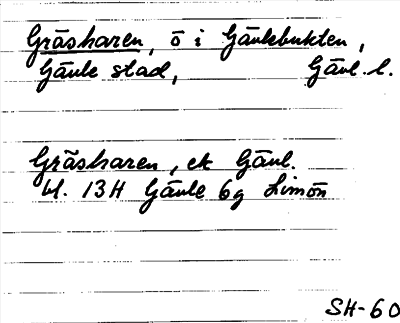 Gräsharen, ö i Gävlebukten,
Gävle stad, Gävl. l.
Gräsharen, ek Gävl.
bl. 13H Gävle 6g Limön
SH-60